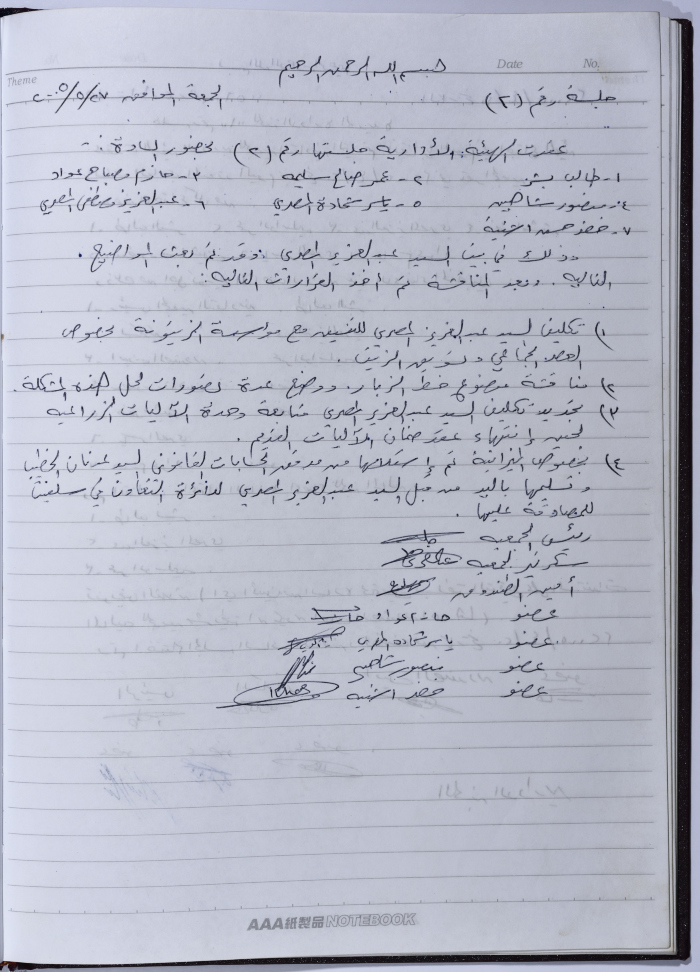 Theme Date No.
بسم الله الرحمن الرحيم
جلسة رقم (٢) الجمعة الموافق ٢٠٠٥/٥/٢٧
عقدت الهيئة الأدارية جلستها رقم (٢) بحضور السادة :-
١- طالب بشر ٢- عمر صالح سليمه ٣- حازم مصباح عواد
٤- منصور شاهين ٥- ياسر شحادة المصري ٦- عبد العزيز مصطفى المصري
٧- خضر حسن
وذلك في بيت السيد عبد العزيز المصري . وقد تم بحث المواضيع .
التاليه . وبعد المناقشة تم أخذ القرارات التاليه :
١) تكليف السيد عبد العزيز المصري للتنسيق مع مؤسسة الزيتونة بخصوص
العصر الجماعي وتسويق الزيت .
٢) مناقشة موضوع خط الزبار . ووضع عدة تصورات لحل هذه المشكلة .
٣) تجديد تكليف السيد عبد العزيز المصري متابعة وحدة الآليات الزراعية
لحين إنتهاء عقد ضمان الآليات القديم .
٤) بخصوص الميزانية تم إستلامها من مدقق الحسابات القانوني السيد عدنان الخطيب
وتسليمها باليد من قبل السيد عبد العزيز المصري لدائرة التعاون في سلفيت
للمصادقة عليها .
رئيس الجمعيه
سكرتير الجمعيه
أمين الصندوق
عضو حازم عواد
عضو ياسر شحاده المصري
عضو منصور شاهين
عضو خضر
AAA紙製品 NOTEBOOK